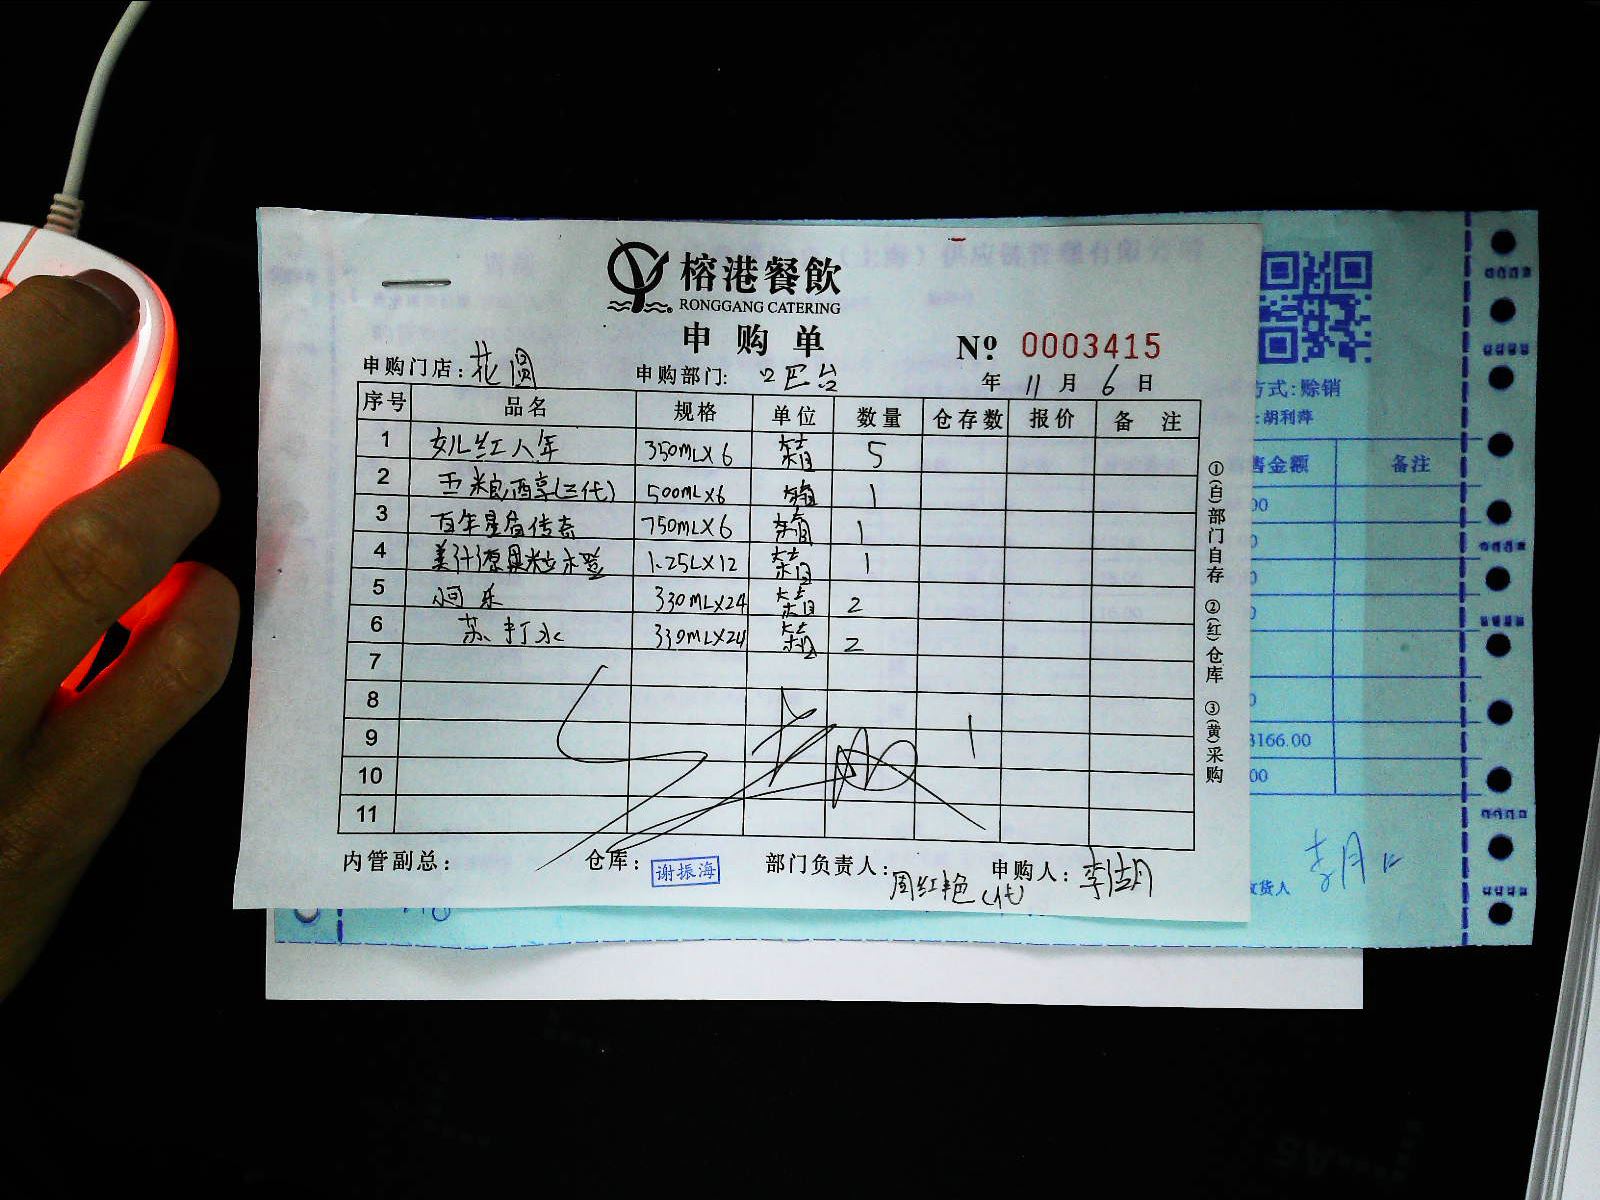 榕港餐飲
RONGGANG CATERING
申购单
№ 0003415
申购门店：花园 申购部门：吧台 年 11 月 6 日
序号 品名 规格 单位 数量 仓存数 报价 备注
1 女儿红八年 350MLX6 箱 5
2 五粮醇(三代) 500MLX6 箱 1
3 百年 传奇 750MLX6 箱 1
4 美汁源果粒 1.25LX12 箱 1
5 可乐 330MLX24 箱 2
6 苏打水 330MLX24 箱 2
7
8
9
10
11
内管副总： 仓库：谢振海 部门负责人：周红艳(代) 申购人：李
①(白)部门自存 ②(红)仓库 ③(黄)采购
方式:赊销
:胡利萍
售金额 备注
3166.00
收货人